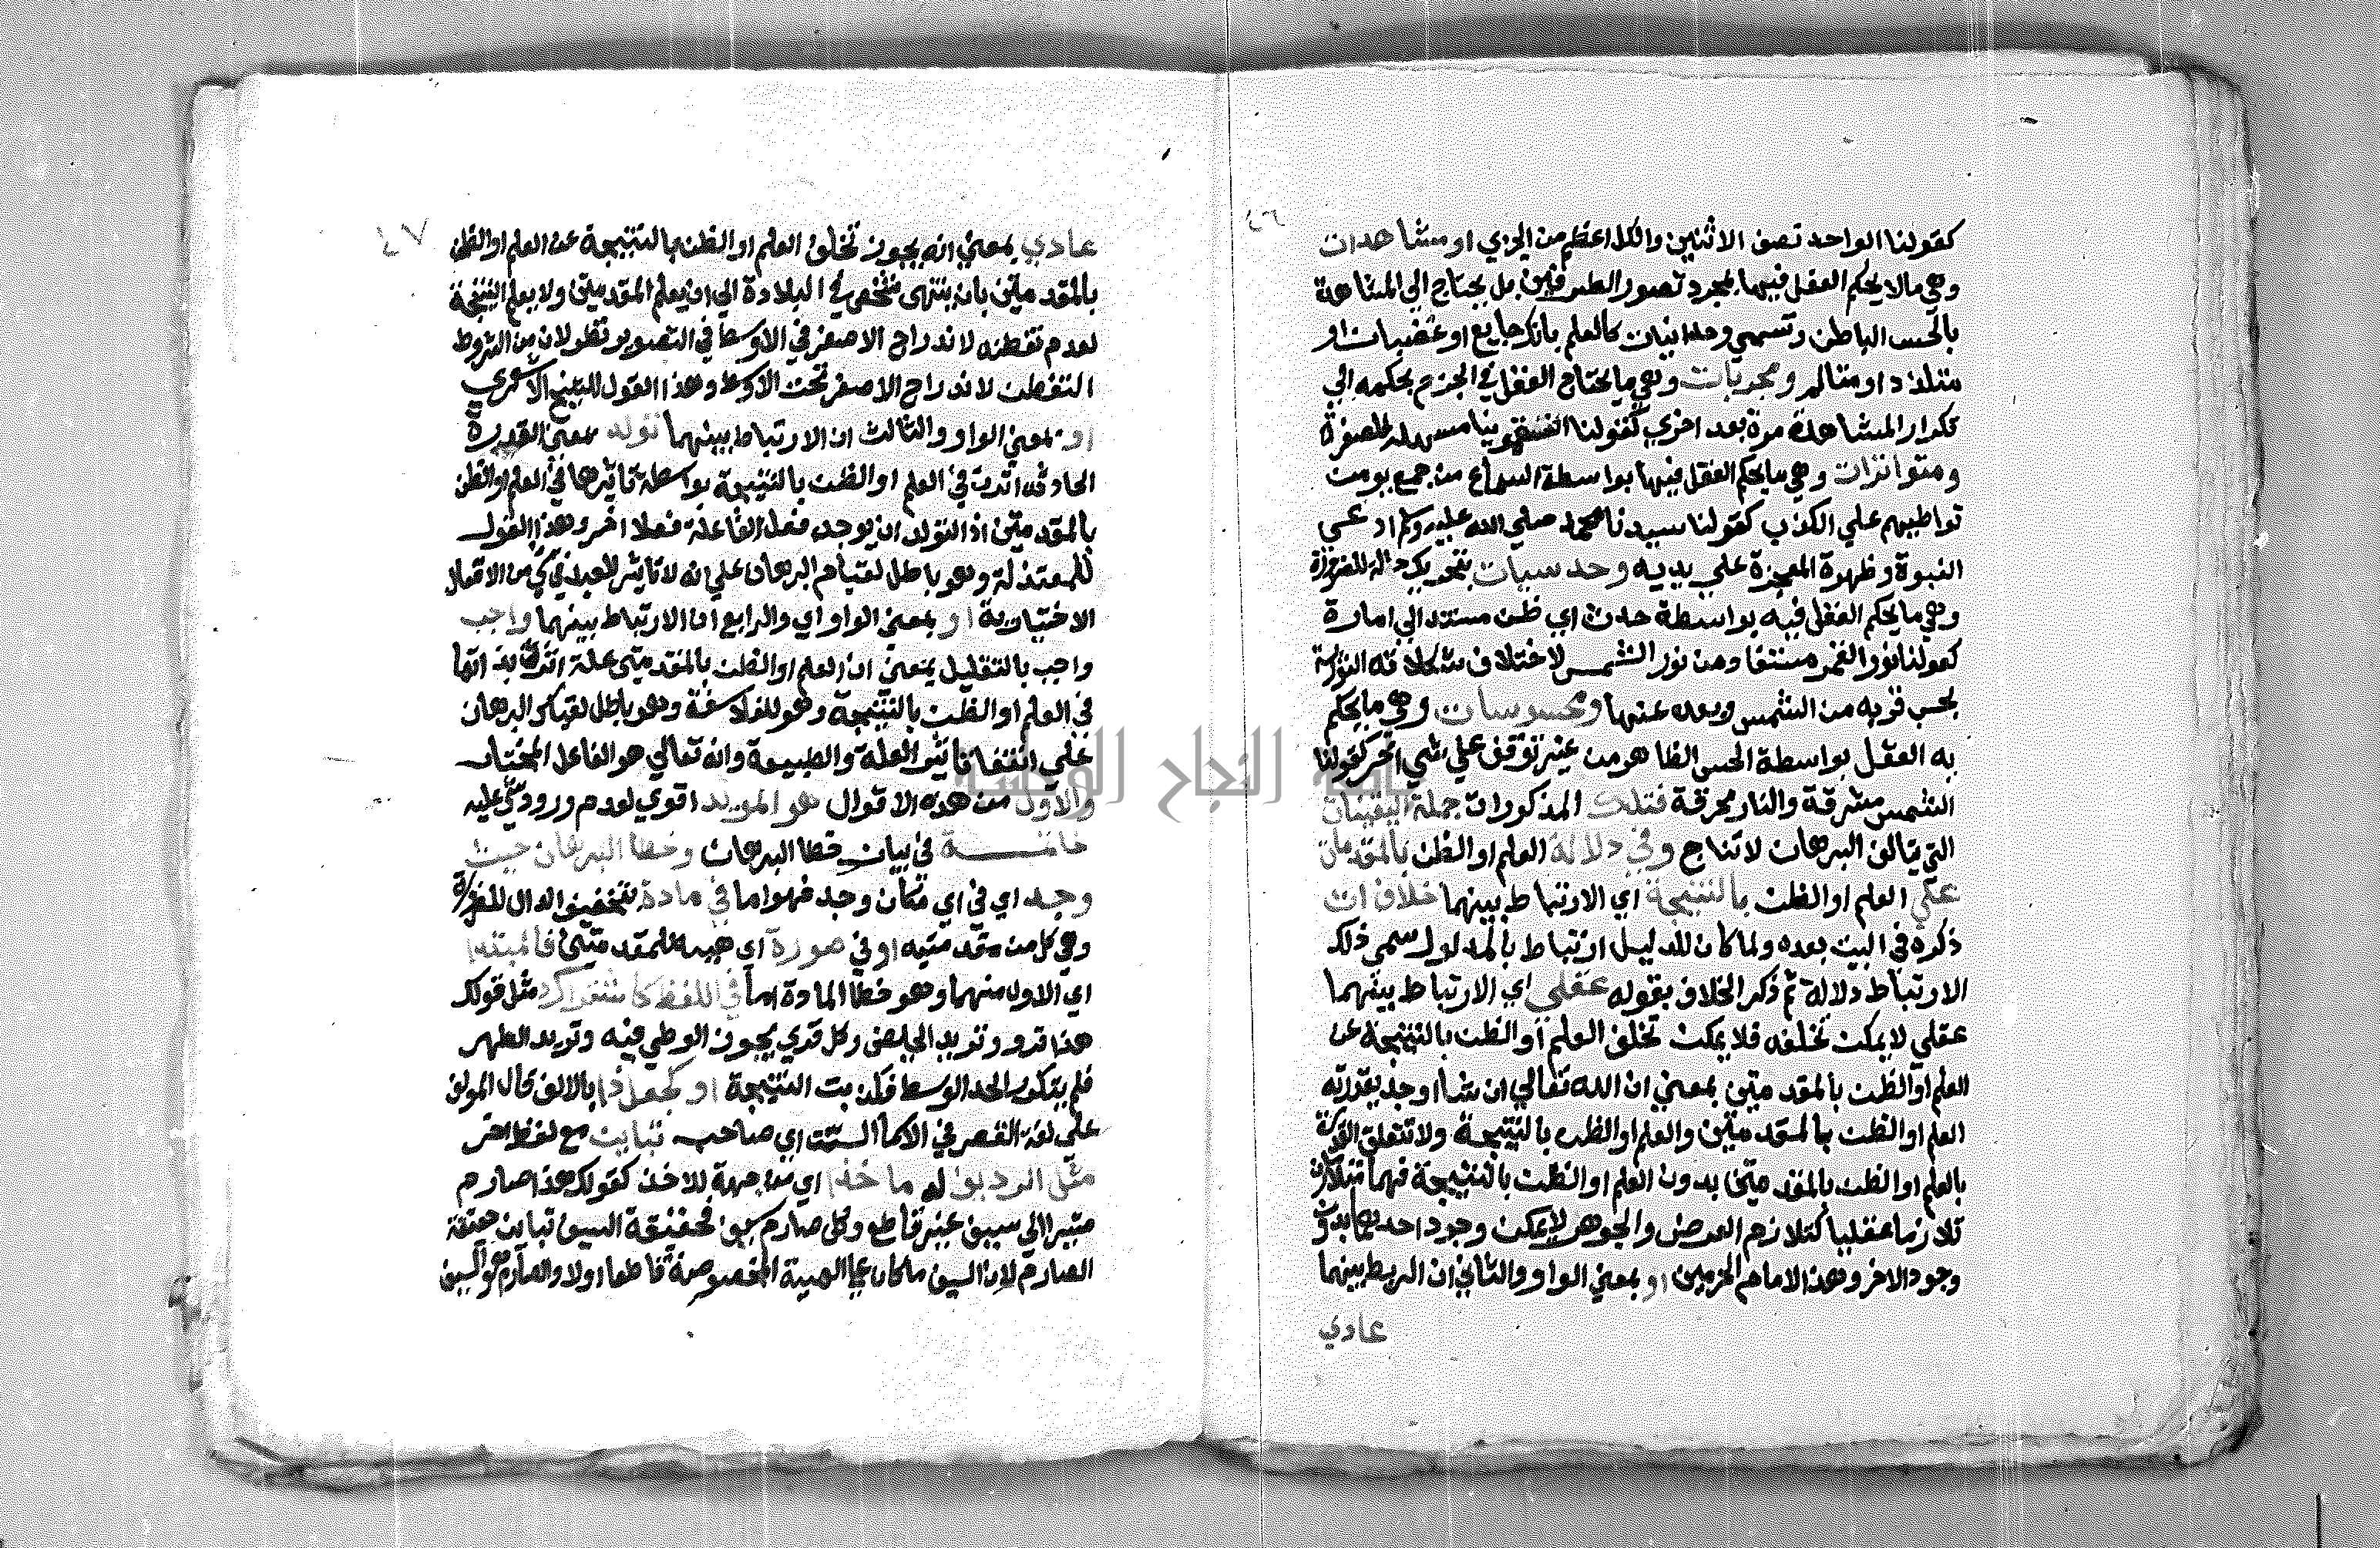 ٤٦
كقولنا الواحد نصف الاثنين والكل اعظم من الجزي او مشاهدات
وهي ما لا يحكم العقل فيها بمجرد تصور الطرفين بل يحتاج الي المشاهدة
بالحس الباطن وتسمي وجدانيات كالعلم بانك جايع او غضبات او
متلذذ او متالم ومجربات وهي ما يحتاج العقل في الجزم بحكمه الي
تكرار المشاهدة مرة بعد اخري كقولنا السقمونيا مسهلة للصفرة
ومتواترات وهي ما يحكم العقل فيها بواسطة السماع من جمع يومن
تواطيهم علي الكذب كقولنا سيدنا محمد صلي الله عليه وسلم ادعي
النبوة وظهرة المعجزة علي يديه وحدسيات بتحريك داله للضرورة
وهي ما يحكم العقل فيه بواسطة حدث اي ظن مستند الي امارة
كقولنا نور القمر مستفاد من نور الشمس لاختلاف تشكلاته النورية
بحسب قربه من الشمس وبعده عنها ومحسوسات وهي ما يحكم
به العقل بواسطة الحس الظاهر من غير توقف علي شي اخر كقولنا
الشمس مشرقة والنار محرقة فتلك المذكورات جملة اليقينات
التي يتالف البرهان لانتاج وفي دلالة العلم او الظن بالمقدمات
علي العلم او الظن بالنتيجة اي الارتباط بينهما خلاف ات
ذكره في البيت بعده ولما كان للدليل ارتباط بالمدلول سمي ذلك
الارتباط دلالة ثم ذكر الخلاف بقوله عقلي اي الارتباط بينهما
عقلي لا يمكن تخلفه فلا يمكن تخلف العلم او الظن بالنتيجة عن
العلم او الظن بالمقدمتين بمعني ان الله تعالي ان شا اوجد بقدرته
العلم او الظن بالمقدمتين والعلم او الظن بالنتيجة ولا تتعلق القدرة
بالعلم او الظن بالمقدمتين بدون العلم او الظن بالنتيجة فهما متلازمان
تلازما عقليا كتلازم العرض والجوهر لا يمكن وجود احدهما بدون
وجود الاخر وهذا لامام الحرمين او بمعني الواو والثاني ان الربط بينهما
عادي
٤٧
عادي بمعني انه يجوز تخلف العلم او الظن بالنتيجة عن العلم او الظن
بالمقدمتين بان ينتهي شخص في البلادة الي ان يعلم المقدمتين ولا يعلم النتيجة
لعدم تفطنه لاندراج الاصغر في الاوسط في التصوير نظر لان من الشروط
التفطن لاندراج الاصغر تحت الاوسط وهذا القول للشيخ الاشعري
او بمعني الواو والثالث ان الارتباط بينهما تولد بمعني القدرة
الحادثه اثرت في العلم او الظن بالنتيجة بواسطة تاثيرها في العلم او الظن
بالمقدمتين اذ التولد ان يوجد فعل الفاعلة فعلا اخر وهذا القول
للمعتذلة وهو باطل لقيام البرهان علي انه لا تاثير للعبد في شي من الافعال
الاختيارية او بمعني الواو اي والرابع ان الارتباط بينهما واجب
واجب بالتعليل بمعني ان العلم او الظن بالمقدمتين علة اثرت بذاتها
في العلم او الظن بالنتيجة وهو للفلاسفة وهو باطل لقيام البرهان
علي انتفا تاثير العلة والطبيعة وانه تعالي هو الفاعل المختار
والاول من هذه الاقوال هو المويد اقوي لعدم ورود شي عليه
خاتمـــة في بيان خطا البرهان وخطا البرهان حيث
وجد اي في اي مكان وجد فهو اما في مادة بتخفيف الدال للضرورة
وهي كل من مقدمتيه او في صورة اي هيه للمقدمتين فالمبتدا
اي الاول منهما وهو خطا المادة اما في اللفظ كاشتراك مثل قولك
هذا قرو وتريد الحيض وكل قري يجوز الوطي فيه وتريد الطهر
فلم يتكرر الحد الوسط فكذبت النتيجة او كجعل ذا بالالف حال المولف
علي لغة القصر في الاسما الستت اي صاحب تباين مع لفظ اخر
مثل الرديف له ماخذا اي من جهة للاخذ كقولك هذا صارم
مشيرا الي سيف غير قاطع وكل صارم سيف فحقيقة السيف تباين حقيقة
الصارم لان السيف ما كان علي الهيية المخصوصة قاطعا اولا والصارم هو السيف
جامعة النجاح الوطنية